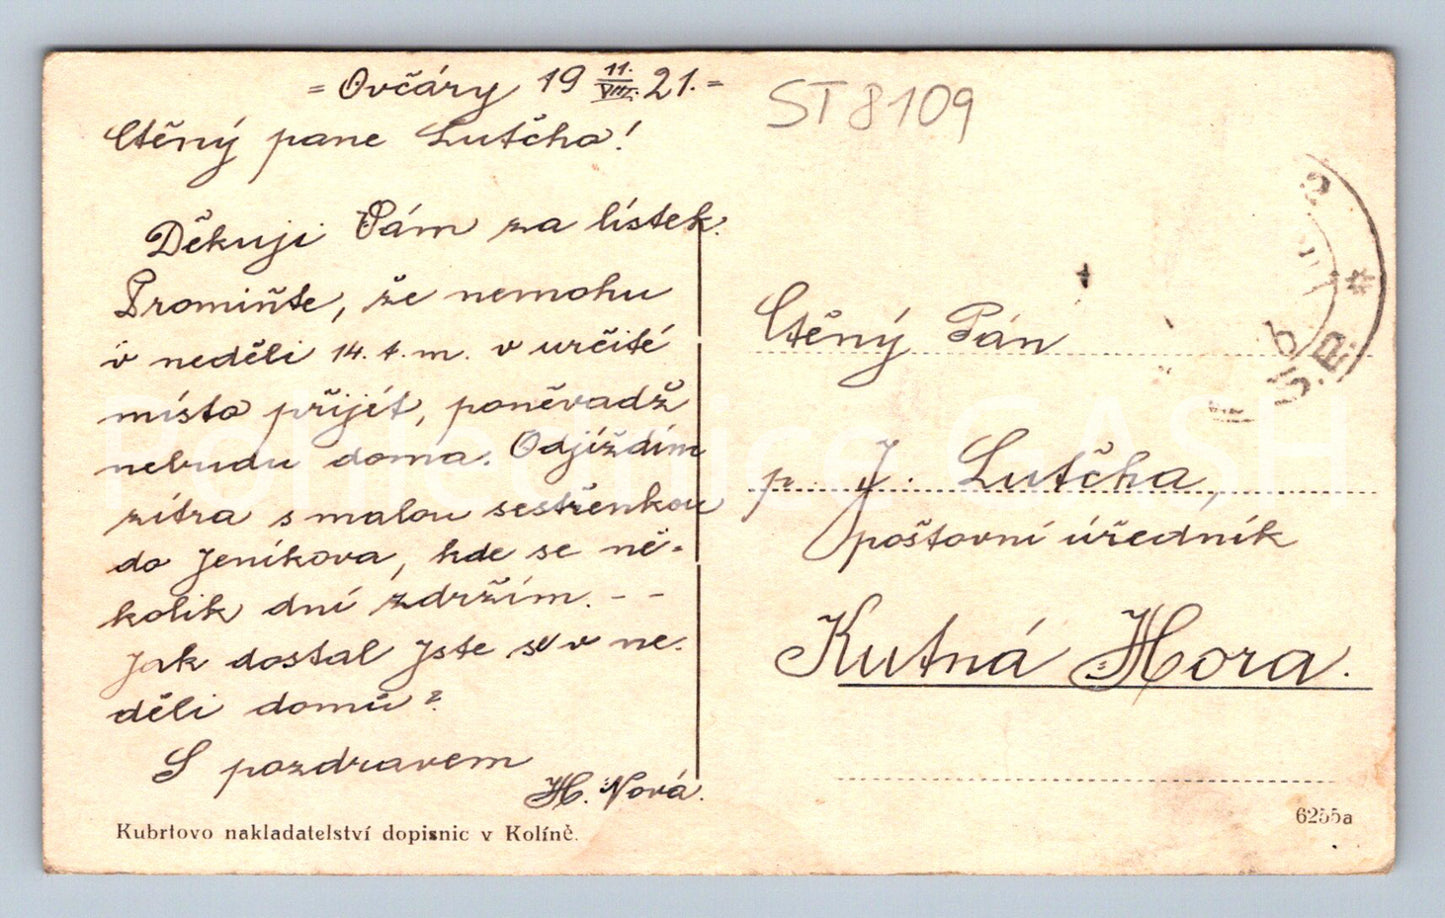 = Ovčáry 19 11./VIII. 21. =
Ctěný pane Lutčha!
Děkuji Vám za lístek.
Promiňte, že nemohu
v neděli 14. t. m. v určité
místo přijít, poněvadž
nebudu doma. Odjíždím
zítra s malou sestřenkou
do Jeníkova, kde se ně-
kolik dní zdržím. - -
Jak dostal jste se v ne-
děli domů?
S pozdravem
H. Nová.
Kubrtovo nakladatelství dopisnic v Kolíně.
ST8109
Ctěný Pán
p. J. Lutčha,
poštovní úředník
Kutná Hora.
6255a
Pohlednice GASH